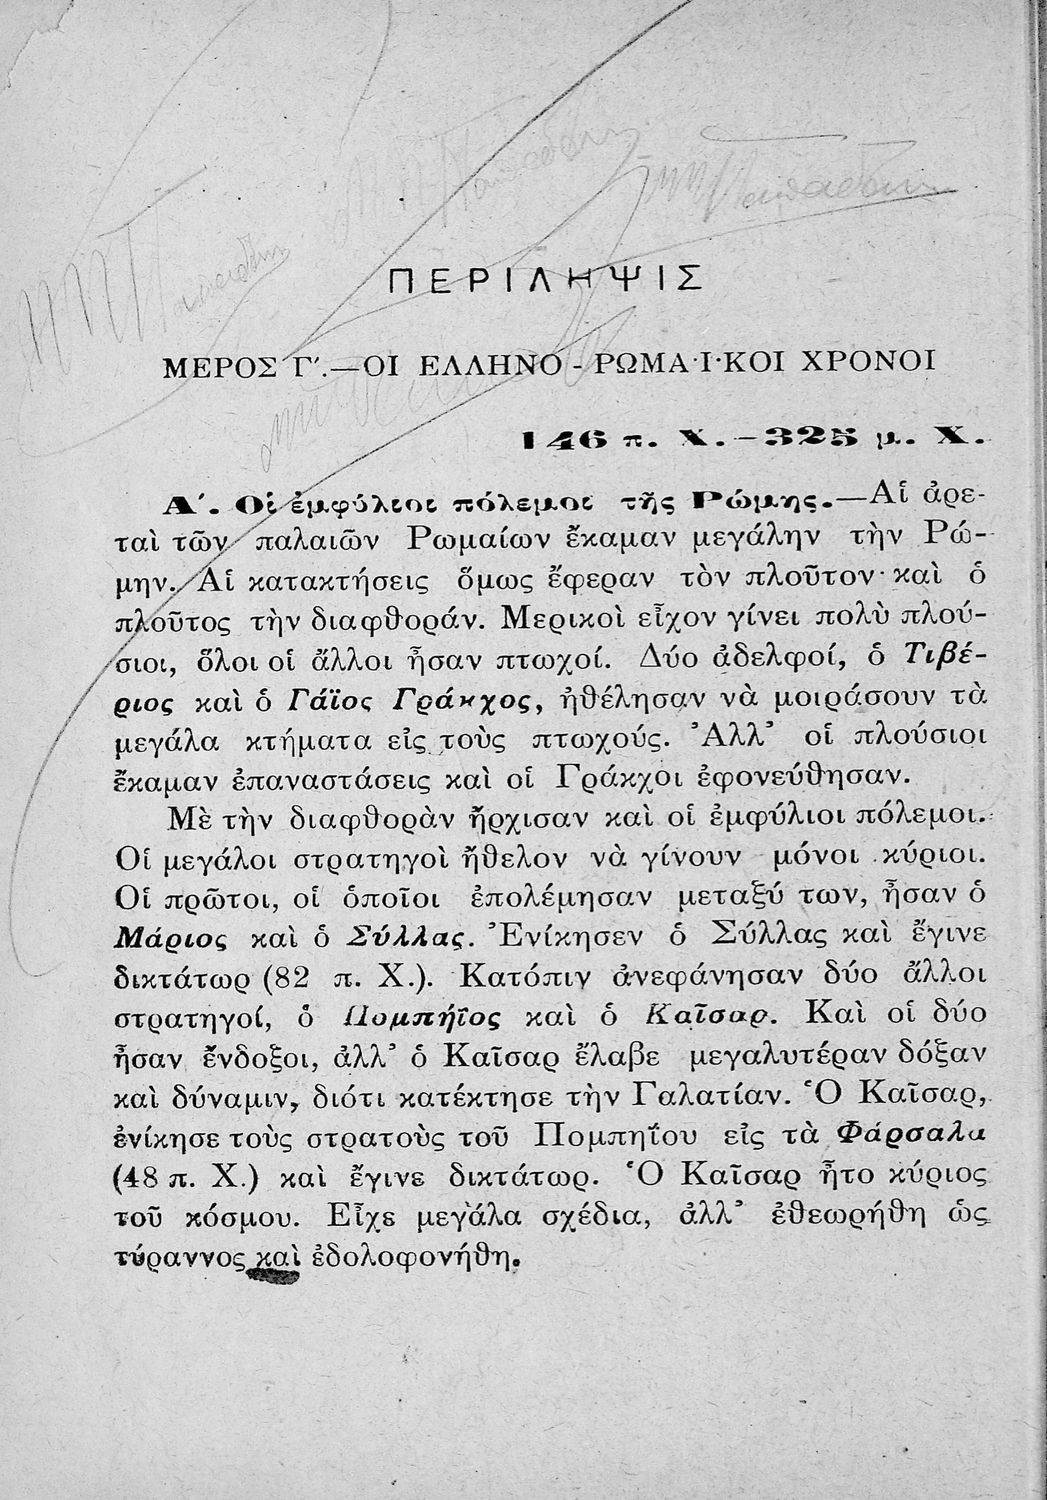 ΠΕΡΙΛΗΨΙΣ
ΜΕΡΟΣ Γʹ.—ΟΙ ΕΛΛΗΝΟ - ΡΩΜΑ·Ι·ΚΟΙ ΧΡΟΝΟΙ
146 π. Χ.–325 μ. Χ.
Αʹ. Οἱ ἐμφύλιοι πόλεμοι τῆς Ρώμης.—Αἱ ἀρε-
ταὶ τῶν παλαιῶν Ρωμαίων ἔκαμαν μεγάλην τὴν Ρώ-
μην. Αἱ κατακτήσεις ὅμως ἔφεραν τὸν πλοῦτον· καὶ ὁ
πλοῦτος τὴν διαφθοράν. Μερικοὶ εἶχον γίνει πολὺ πλού-
σιοι, ὅλοι οἱ ἄλλοι ἦσαν πτωχοί. Δύο ἀδελφοί, ὁ Τιβέ-
ριος καὶ ὁ Γάϊος Γράκχος, ἠθέλησαν νὰ μοιράσουν τὰ
μεγάλα κτήματα εἰς τοὺς πτωχούς. Ἀλλ' οἱ πλούσιοι
ἔκαμαν ἐπαναστάσεις καὶ οἱ Γράκχοι ἐφονεύθησαν.
Μὲ τὴν διαφθορὰν ἤρχισαν καὶ οἱ ἐμφύλιοι πόλεμοι.
Οἱ μεγάλοι στρατηγοὶ ἤθελον νὰ γίνουν μόνοι κύριοι.
Οἱ πρῶτοι, οἱ ὁποῖοι ἐπολέμησαν μεταξύ των, ἦσαν ὁ
Μάριος καὶ ὁ Σύλλας. Ἐνίκησεν ὁ Σύλλας καὶ ἔγινε
δικτάτωρ (82 π. Χ.). Κατόπιν ἀνεφάνησαν δύο ἄλλοι
στρατηγοί, ὁ Πομπήϊος καὶ ὁ Καῖσαρ. Καὶ οἱ δύο
ἦσαν ἔνδοξοι, ἀλλ' ὁ Καῖσαρ ἔλαβε μεγαλυτέραν δόξαν
καὶ δύναμιν, διότι κατέκτησε τὴν Γαλατίαν. Ὁ Καῖσαρ,
ἐνίκησε τοὺς στρατοὺς τοῦ Πομπηΐου εἰς τὰ Φάρσαλα
(48 π. Χ.) καὶ ἔγινε δικτάτωρ. Ὁ Καῖσαρ ἦτο κύριος
τοῦ κόσμου. Εἶχε μεγάλα σχέδια, ἀλλ' ἐθεωρήθη ὡς
τύραννος καὶ ἐδολοφονήθη.